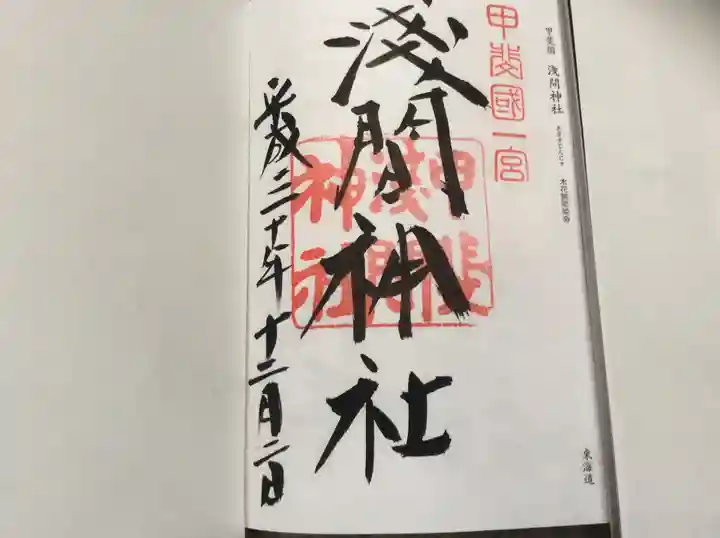 甲斐國 浅間神社 あさまじんじゃ 木花開耶姫命
東海道
甲斐國一宮
淺間神社
甲斐淺間神社
平成三十年十二月二日